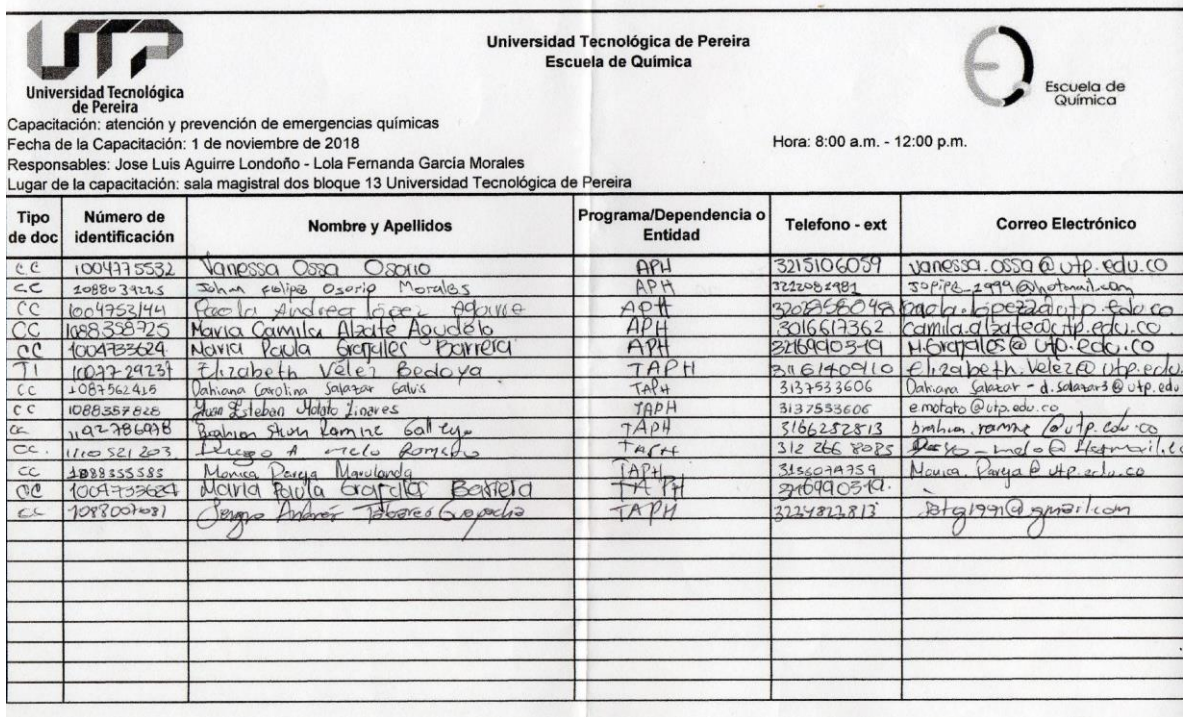 UTP
Universidad Tecnológica
de Pereira
Universidad Tecnológica de Pereira
Escuela de Química
Escuela de
Química
Capacitación: atención y prevención de emergencias químicas
Fecha de la Capacitación: 1 de noviembre de 2018 Hora: 8:00 a.m. - 12:00 p.m.
Responsables: Jose Luis Aguirre Londoño - Lola Fernanda García Morales
Lugar de la capacitación: sala magistral dos bloque 13 Universidad Tecnológica de Pereira
Tipo de doc Número de identificación Nombre y Apellidos Programa/Dependencia o Entidad Telefono - ext Correo Electrónico
CC 1004775532 Vanessa Ossa Osorio APH 3215106059 vanessa.ossa@utp.edu.co
CC Johan Felipe Osorio Morales APH 3222082981
CC 1004753144 Paola Andrea López Aguirre APH
CC 1088358725 Maria Camila Alzate Agudelo APH 3016617362 camila.alzate@utp.edu.co
CC 1004733624 Maria Paula Grajales Barrera APH 3216990319 M.Grajales@utp.edu.co
TI Elizabeth Vélez Bedoya TAPH 3116140910 Elizabeth.Velez@utp.edu.
CC 1087562415 Dahiana Carolina Salazar Galvis TAPH 3137533606 Dahiana Salazar - d.salazar3@utp.edu
CC 1088357828 Juan Esteban Linares TAPH 3137533606 emotato@utp.edu.co
CC 1192786978 TAPH 3166252813
CC. 1110521203 A Melo Romero TAPH 312 266 8085
CC 1088355585 Monica Pareja Marulanda TAPH 3136079759 Monica.Pareja@utp.edu.co
CC 1004733624 Maria Paula Grajales Barrera TAPH 3216990319.
CC 1088007081 Sergio Andrés Tabares TAPH 3234823813 @gmail.com